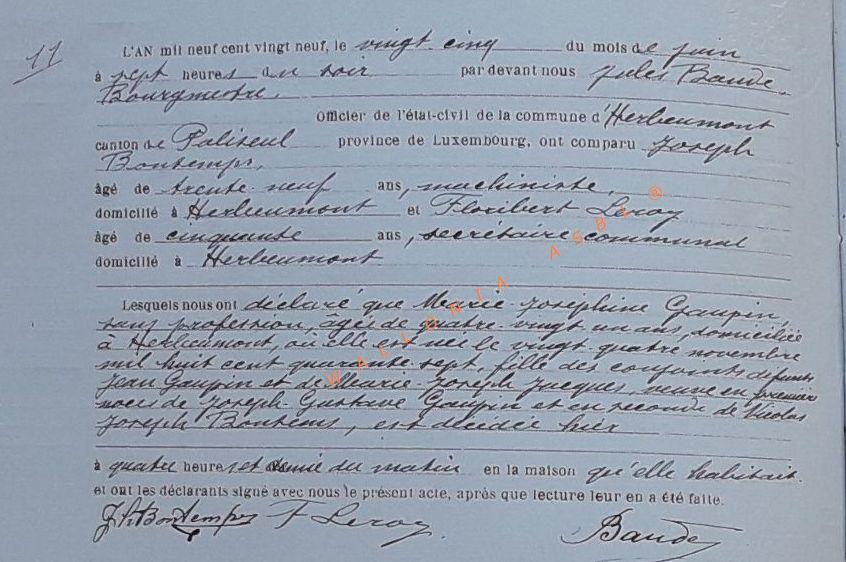 11
L'AN mil neuf cent vingt neuf, le vingt-cinq du mois de juin
à sept heures du soir par devant nous Jules Baude,
Bourgmestre,
Officier de l'état-civil de la commune d'Herbeumont
canton de Paliseul province de Luxembourg, ont comparu Joseph
Bontemps,
âgé de trente-neuf ans, machiniste,
domicilié à Herbeumont et Floribert Leroy
âgé de cinquante ans, secrétaire communal
domicilié à Herbeumont
Lesquels nous ont déclaré que Marie-Joséphine Gaupin,
sans profession, âgée de quatre-vingt un ans, domiciliée
à Herbeumont, où elle est née le vingt-quatre novembre
mil huit cent quarante-sept, fille des conjoints défunts
Jean Gaupin et de Marie-Joseph Jacques, veuve en premier
noces de Joseph-Gustave Gaupin et en seconde de Nicolas
Joseph Bontems, est décédée hier
à quatre heures et demie du matin en la maison qu'elle habitait.
et ont les déclarants signé avec nous le présent acte, après que lecture leur en a été faite.
Bontemps F Leroy. Baude
WALLONIA ASBL @